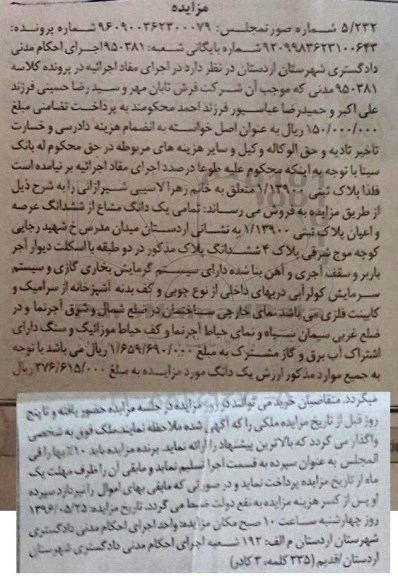 مزایده
۵/۲۳۲ شماره صورتمجلس: ۹۶۰۹۰۰۳۶۲۳۰۰۰۷۹ شماره پرونده:
۹۲۰۹۹۸۳۶۲۳۱۰۰۶۴۳ شماره بایگانی شعبه: ۹۵۰۳۸۱ اجرای احکام مدنی
دادگستری شهرستان اردستان در نظر دارد در اجرای مفاد اجرائیه در پرونده کلاسه
۹۵۰۳۸۱ مدنی که موجب آن شرکت فرش تابان مهر و سید رضا حسینی فرزند
علی اکبر و حمیدرضا عباسپور فرزند احمد محکومند به پرداخت تضامنی مبلغ
۱۵۰/۰۰۰/۰۰۰ ریال به عنوان اصل خواسته به انضمام هزینه دادرسی و خسارت
تاخیر تادیه و حق الوکاله وکیل و سایر هزینه های مربوطه در حق محکوم له بانک
سینا با توجه به اینکه محکوم علیه طوعا درصدد اجرای مفاد اجرائیه بر نیامده است
فلذا پلاک ثبتی ۱/۱۳۹۰۰ متعلق به خانم زهرا لاسیبی شیرازانی را به شرح ذیل
از طریق مزایده به فروش می رساند: تمامی یک دانگ مشاع از ششدانگ عرصه
و اعیان پلاک ثبتی ۱/۱۳۹۰۰ به نشانی اردستان میدان مدرس خ شهید رجایی
کوچه موج شرقی پلاک ۴ ششدانگ پلاک مذکور در دو طبقه با اسکلت دیوار آجر
باربر و سقف آجری و آهن بنا شده دارای سیستم گرمایش بخاری گازی و سیستم
سرمایش کولرآبی دربهای داخلی از نوع چوبی و کف بدنه آشپزخانه از سرامیک و
کابینت فلزی می باشد نمای خارجی ساختمان در ضلع شمال و شرق آجرنما و در
ضلع غربی سیمان سیاه و نمای حیاط آجرنما و کف حیاط موزائیک و سنگ دارای
اشتراک آب برق و گاز مشترک به مبلغ ۱/۶۵۹/۶۹۰/۰۰۰ ریال می باشد با توجه
به جمیع موارد مذکور ارزش یک دانگ مورد مزایده به مبلغ ۲۷۶/۶۱۵/۰۰۰ ریال
میگردد. متقاضیان خرید می توانند در روز مزایده در جلسه مزایده حضور یافته و تا پنج
روز قبل از تاریخ مزایده ملکی را که آگهی شده ملاحظه نمایند. ملک فوق به شخصی
واگذار می گردد که بالاترین پیشنهاد را ارائه نماید. برنده مزایده باید ۱۰٪ بها را فی
المجلس به عنوان سپرده به قسمت اجرا تسلیم نماید و مابقی آن را ظرف مهلت یک
ماه از تاریخ مزایده پرداخت نماید و در صورتی که مابقی بهای اموال را نپردازد سپرده
او پس از کسر هزینه مزایده به نفع دولت ضبط می گردد. تاریخ مزایده: ۱۳۹۶/۰۵/۲۵
روز چهارشنبه ساعت ۱۰ صبح مکان مزایده: واحد اجرای احکام مدنی دادگستری
شهرستان اردستان م الف: ۱۹۲ شعبه اجرای احکام مدنی دادگستری شهرستان
اردستان /قدیم (۲۳۵ کلمه، ۳ کادر)